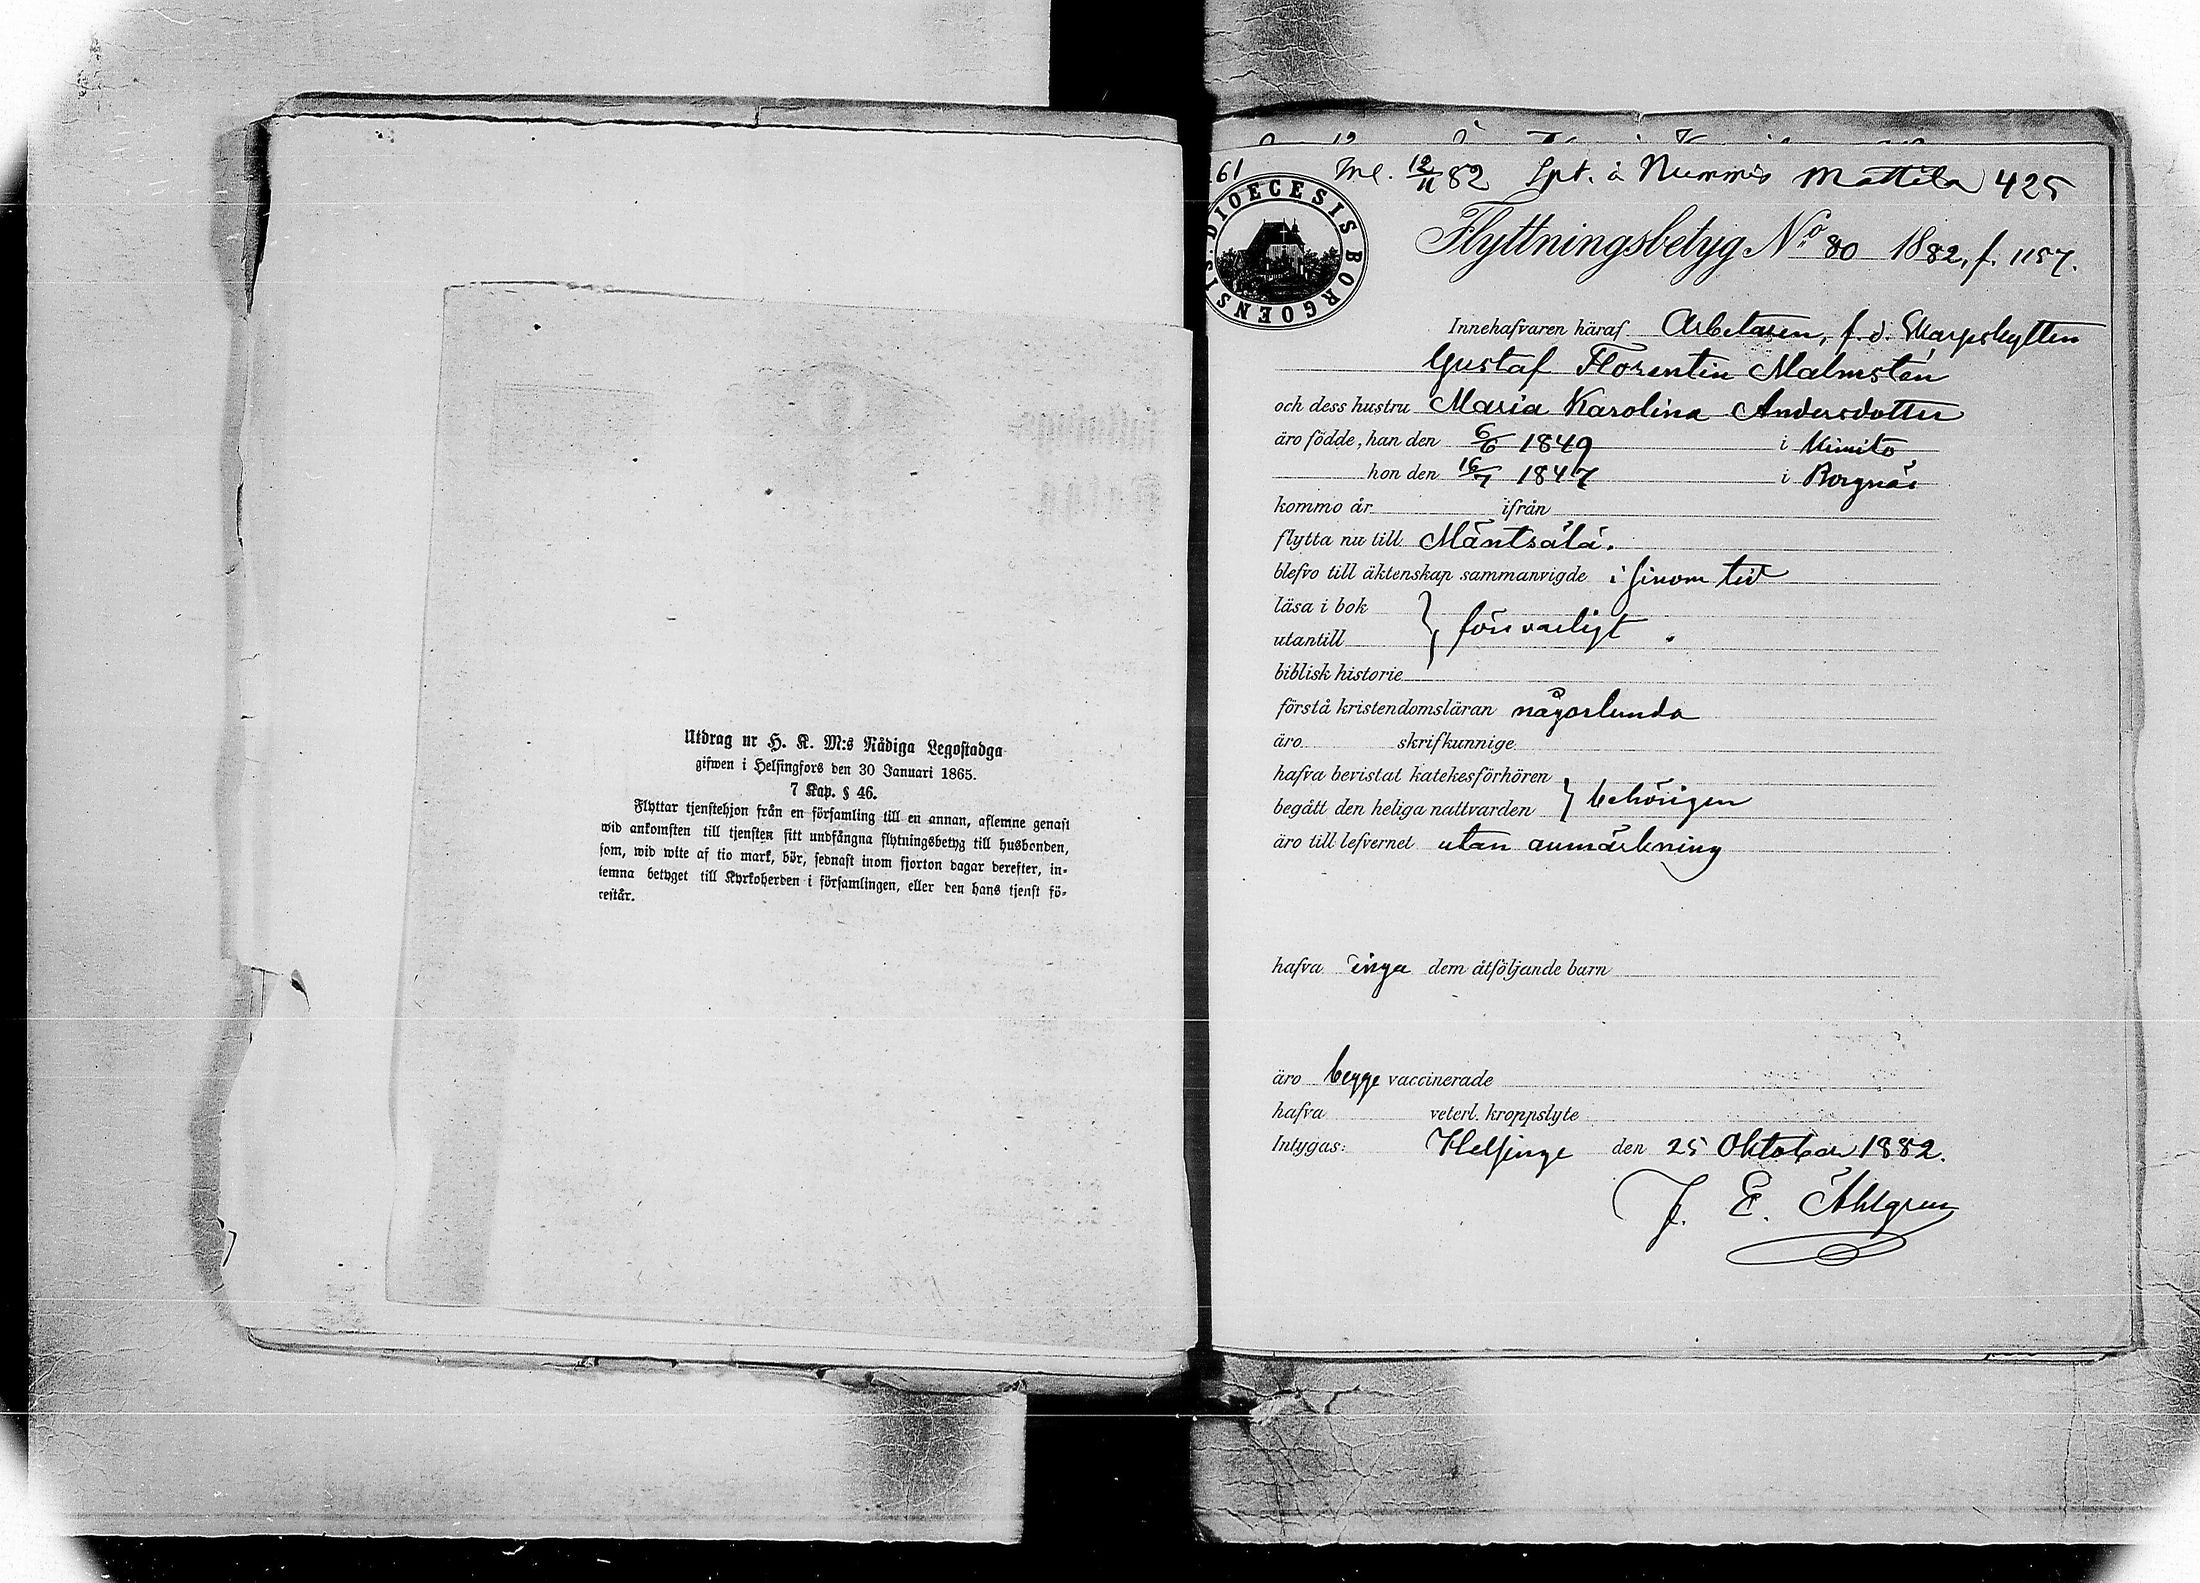 Utdrag ur H. K. M:s Nådiga Legostadga
gifwen i Helsingfors den 30 Januari 1865.
7 Kap. § 46.
Flyttar tjenstehjon från en församling till en annan, aflemne genast
wid ankomsten till tjensten sitt undfångna flytningsbetyg till husbonden,
som, wid wite af tio mark, bör, sednast inom fjorton dagar derefter, in-
lemna betyget till Kyrkoherden i församlingen, eller den hans tjenst fö-
restår.
61 Inl. 12/11 82 Spt. à Nummis Mattila 425
DIOECESIS BORGOENSIS
Flyttningsbetyg No 80 1882, f. 1157.
Innehafvaren häraf Arbetaren, f. d. Skarpskytten
Gustaf Florentin Malmstén
och dess hustru Maria Karolina Andersdotter
äro födde, han den 6/6 1849 i Kimito
hon den 16/7 1847 i Borgnäs
kommo år ifrån
flytta nu till Mäntsälä.
blefvo till äktenskap sammanvigde i sinom tid
läsa i bok
utantill } försvarligt.
biblisk historie
förstå kristendomsläran någorlunda
äro skrifkunnige
hafva bevistat katekesförhören
begått den heliga nattvarden } behörigen
äro till lefvernet utan anmärkning
hafva inga dem åtföljande barn
äro begge vaccinerade
hafva veterl. kroppslyte
Intygas: Helsinge den 25 Oktober 1882.
J. E. Åhlgren